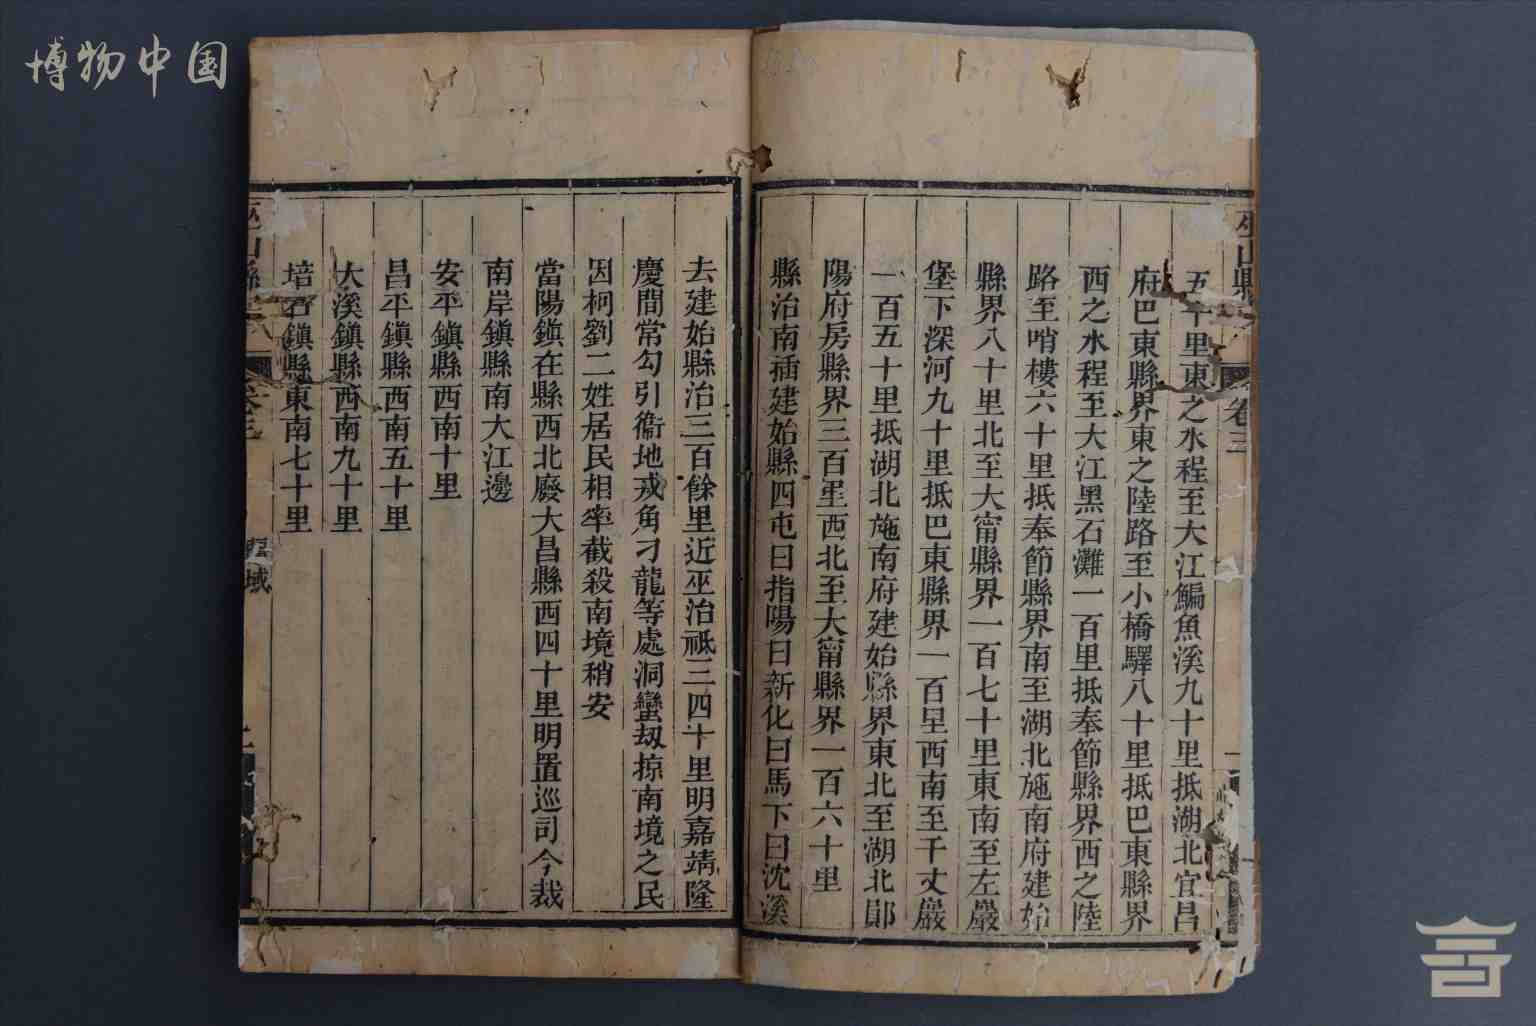 博物中国
山縣
卷三
五十里東之水程至大江鯿魚溪九十里抵湖北宜昌
府巴東縣界東之陸路至小橋驛八十里抵巴東縣界
西之水程至大江黑石灘一百里抵奉節縣界西之陸
路至哨樓六十里抵奉節縣界南至湖北施南府建始
縣界八十里北至大甯縣界一百七十里東南至左巖
堡下深河九十里抵巴東縣界一百里西南至千丈巖
一百五十里抵湖北施南府建始縣界東北至湖北鄖
陽府房縣界三百里西北至大甯縣界一百六十里
縣治南插建始縣四屯曰指陽曰新化曰馬下曰沈溪
去建始縣治三百餘里近巫治祗三四十里明嘉靖隆
慶間常勾引衞地戎角刁龍等處洞蠻刼掠南境之民
因柯劉二姓居民相率截殺南境稍安
當陽鎭在縣西北廢大昌縣西四十里明置巡司今裁
南岸鎭縣南大江邊
安平鎭縣西南十里
昌平鎭縣西南五十里
大溪鎭縣西南九十里
培石鎭縣東南七十里
巫山縣
卷三
域
二